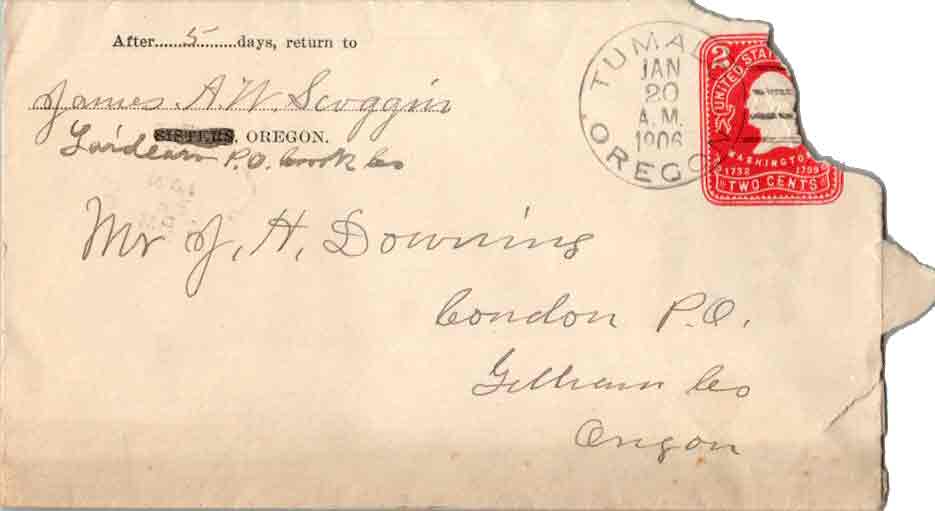 After......5..........days, return to
James. A. W. Scoggin
SISTERS, OREGON.
P.O. Crook Co
Mr J. H. Downing
Condon P.O.
Gilliam Co
Oregon
TUMAL
JAN
20
A.M.
1906
OREGO
2
UNITED STATE
WASHINGTO
1732 1799
TWO CENTS